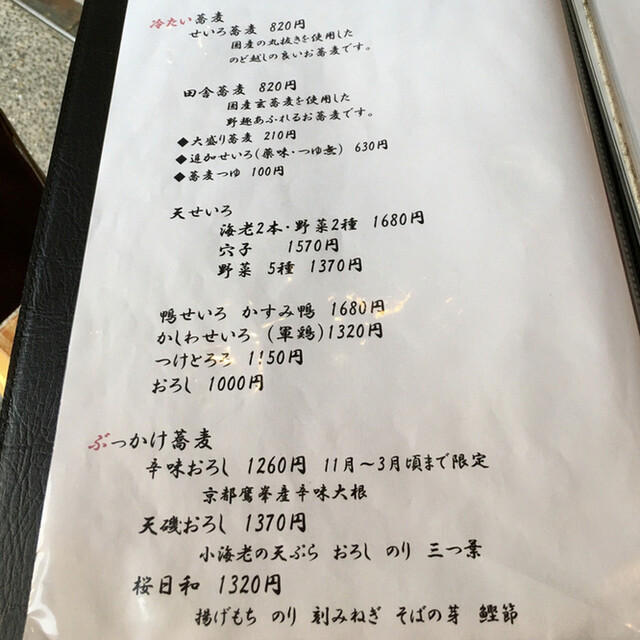 冷たい蕎麦
せいろ蕎麦 820円
国産の丸抜きを使用した
のど越しの良いお蕎麦です。
田舎蕎麦 820円
国産玄蕎麦を使用した
野趣あふれるお蕎麦です。
◆大盛り蕎麦 210円
◆追加せいろ(薬味・つゆ無) 630円
◆蕎麦つゆ 100円
天せいろ
海老2本・野菜2種 1680円
穴子 1570円
野菜 5種 1370円
鴨せいろ かすみ鴨 1680円
かしわせいろ (軍鶏)1320円
つけとろろ 1150円
おろし 1000円
ぶっかけ蕎麦
辛味おろし 1260円 11月~3月頃まで限定
京都鷹峯産辛味大根
天磯おろし 1370円
小海老の天ぷら おろし のり 三つ葉
桜日和 1320円
揚げもち のり 刻みねぎ そばの芽 鰹節